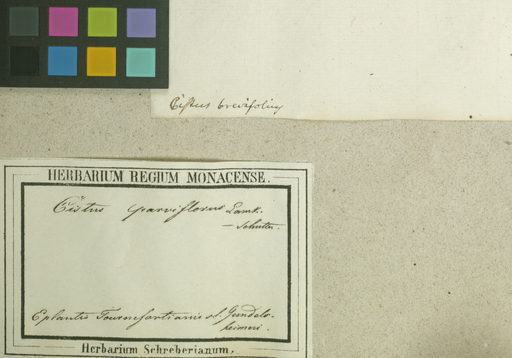 Cistus brevifolius
HERBARIUM REGIUM MONACENSE.
Cistus parviflorus Lamk.
E plantis Tournefortianis a. Gundels-
heimeri.
Herbarium Schreberianum.